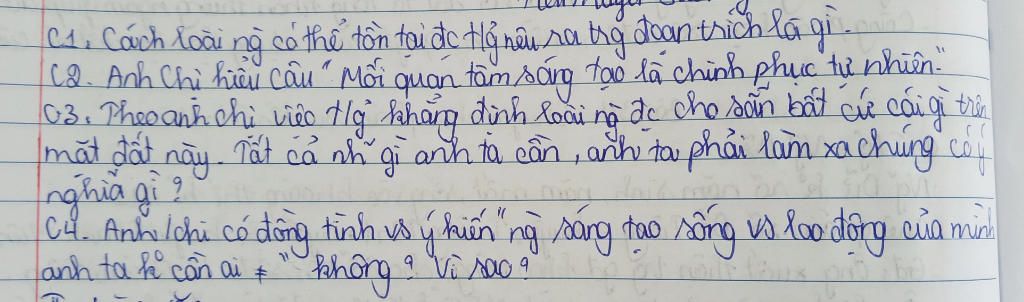 C1. Cách loài ng̀ có thể tồn tại đc t/g nêu ra trg đoạn trích là gì.
C2. Anh Chị hiểu câu "Mối quan tâm sáng tạo là chinh phục tự nhiên."
C3. Theo anh chị việc t/g khẳng định loài ng̀ đc cho sẵn bất cứ cái gì trên
mặt đất này. Tất cả nh~ gì anh ta cần, anh ta phải làm ra chúng có ý
nghĩa gì?
C4. Anh/chị có đồng tình vs ý kiến "ng̀ sáng tạo sống vs lao động của mình
anh ta k° cần ai ≠" không? Vì sao?